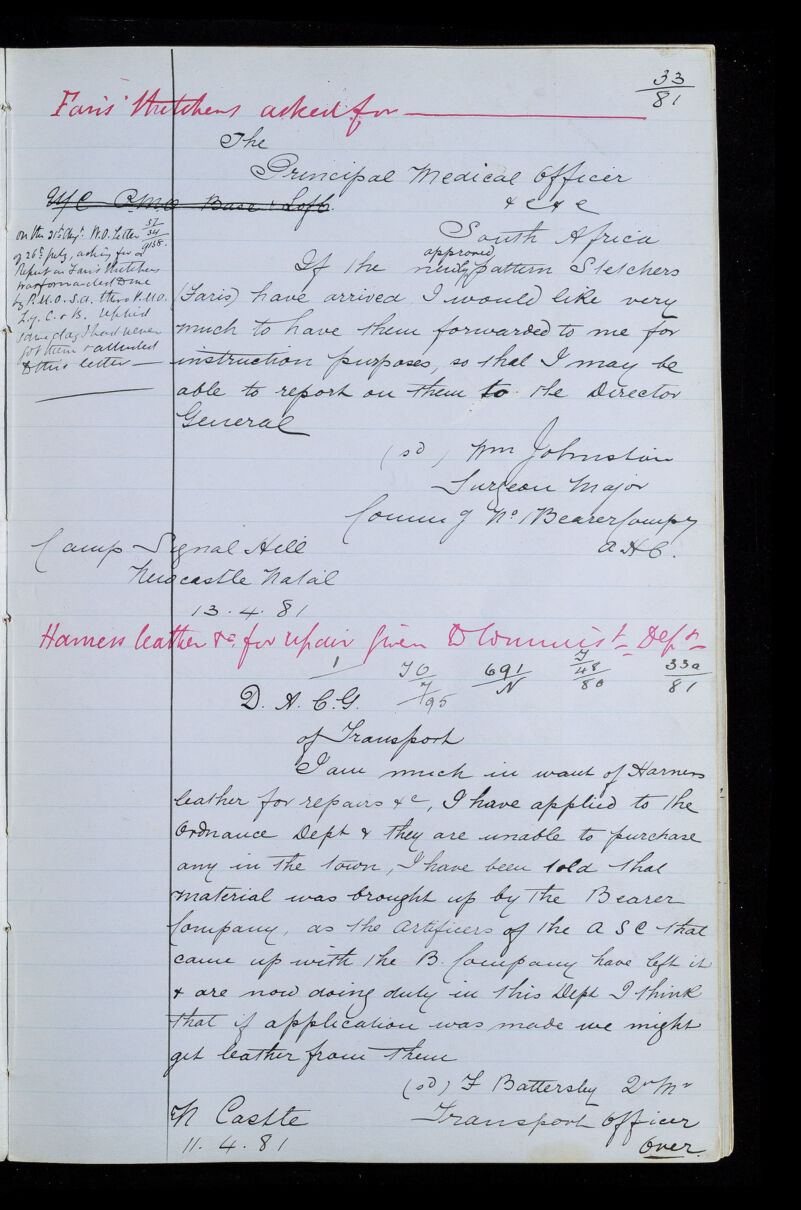 33
81
Faris' Stretchers asked for
The
Principal Medical Officer
& c & c
P.M.O. Base & Lofc.
South Africa
If the newly approved pattern Stetchers
(Faris) have arrived, I would like very
much to have them forwarded to me for
instruction purposes, so that I may be
able to report on them to the Director
General
(sd) Wm Johnston
Surgeon Major
Commg No 1 Bearer Compy
A H C.
Camp Signal Hill
Newcastle Natal
13. 4. 81
on the 31st Augt. W.O. Letter 57
34
9138.
of 26th July, asking for a
Report on Faris Stretchers
was forwarded to me
by P.M.O. S.A. thro P.M.O.
L. of C. & B. replied
same day I had never
got them & attached
to this letter —
Harness leather &c. for repair given to Commist. Dept.
1 70 691 J 33a
7/95 N 48 81
80
D. A. C. G.
of Transport
I am much in want of Harness
leather for repairs &c, I have applied to the
Ordnance Dept & they are unable to purchase
any in the town, I have been told that
material was brought up by the Bearer
Company, as the Artificers of the A S C that
came up with the B. Company have left it
& are now doing duty in this Dept I think
that if application was made we might
get leather from them
(sd) F Battersby Qr Mr
N Castle Transport Officer
11. 4. 81 Over